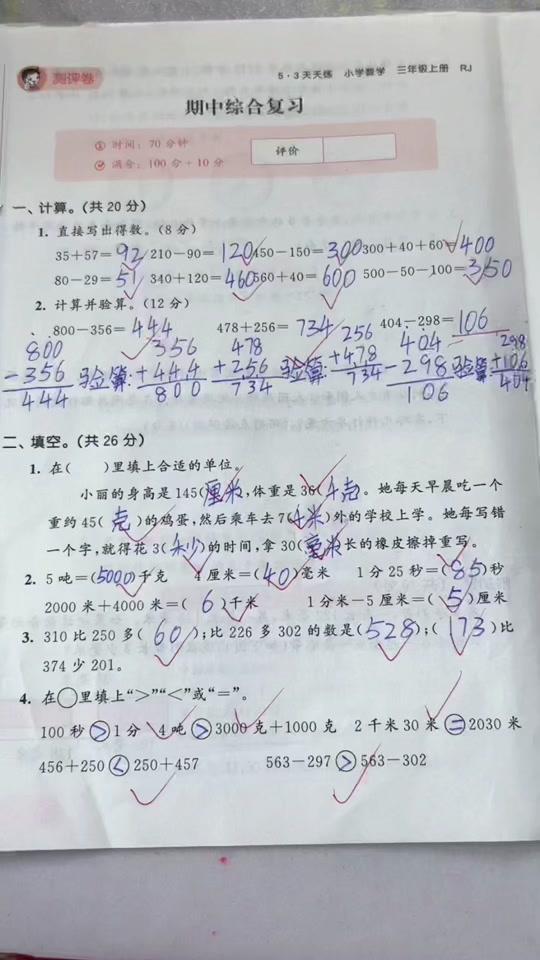 测评卷
5·3天天练 小学数学 三年级上册 RJ
期中综合复习
时间：70分钟
满分：100分+10分
评价
一、计算。(共20分)
1. 直接写出得数。(8分)
35+57=92 210-90=120 450-150=300 300+40+60=400
80-29=51 340+120=460 560+40=600 500-50-100=350
2. 计算并验算。(12分)
800-356=444 478+256=734 404-298=106
800 356 478 256 404 298
-356 验算: +444 +256 验算: +478 -298 验算 +106
444 800 734 734 106 404
二、填空。(共26分)
1. 在( )里填上合适的单位。
小丽的身高是145(厘米),体重是36(千克。她每天早晨吃一个
重约45(克)的鸡蛋,然后乘车去7(千米)外的学校上学。她每写错
一个字,就得花3(秒)的时间,拿30(毫米长的橡皮擦掉重写。
2. 5吨=(5000)千克 4厘米=(40)毫米 1分25秒=(85)秒
2000米+4000米=(6)千米 1分米-5厘米=(5)厘米
3. 310比250多(60);比226多302的数是(528);(173)比
374少201。
4. 在○里填上“>”“<”或“=”。
100秒>1分 4吨>3000克+1000克 2千米30米=2030米
456+250<250+457 563-297>563-302